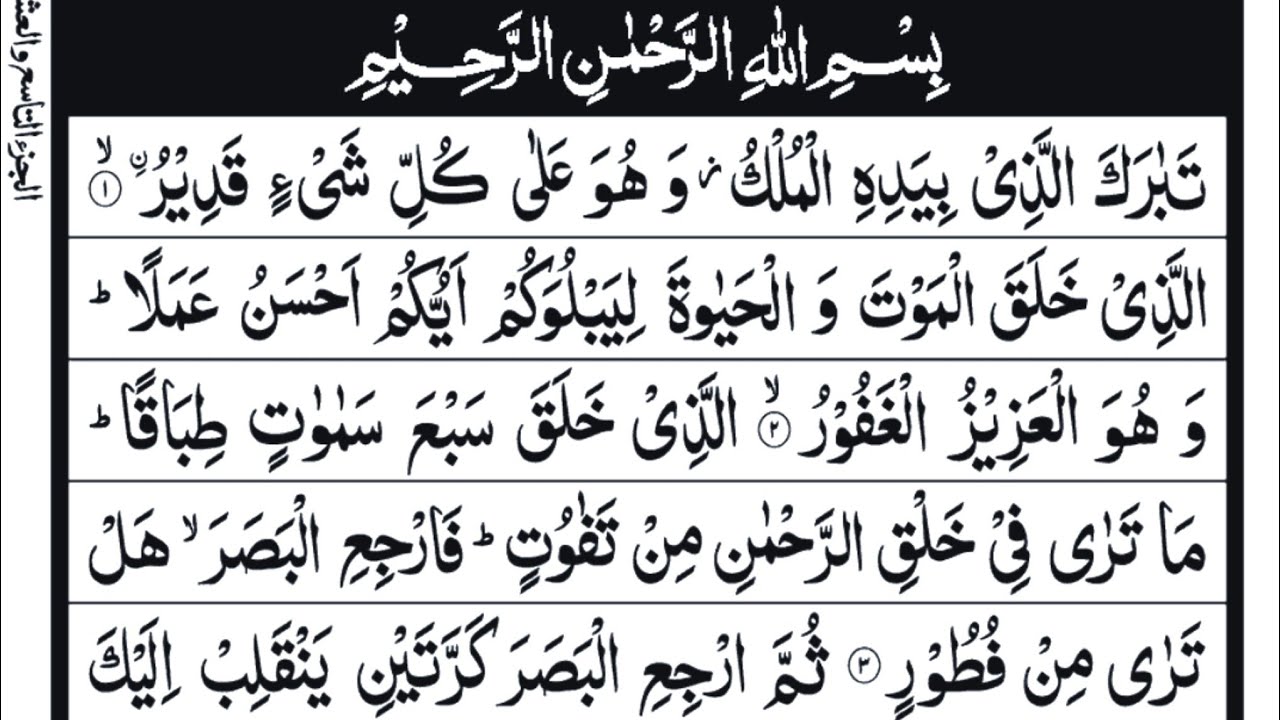 بِسْمِ اللهِ الرَّحْمٰنِ الرَّحِيْمِ
تَبٰرَكَ الَّذِیْ بِیَدِهِ الْمُلْكُ ؗ وَ هُوَ عَلٰی كُلِّ شَیْءٍ قَدِیْرُ ۙ ﴿۱﴾
الَّذِیْ خَلَقَ الْمَوْتَ وَ الْحَیٰوةَ لِیَبْلُوَكُمْ اَیُّكُمْ اَحْسَنُ عَمَلًا ؕ
وَ هُوَ الْعَزِیْزُ الْغَفُوْرُ ۙ ﴿۲﴾ الَّذِیْ خَلَقَ سَبْعَ سَمٰوٰتٍ طِبَاقًا ؕ
مَا تَرٰی فِیْ خَلْقِ الرَّحْمٰنِ مِنْ تَفٰوُتٍ ؕ فَارْجِعِ الْبَصَرَ ۙ هَلْ
تَرٰی مِنْ فُطُوْرٍ ﴿۳﴾ ثُمَّ ارْجِعِ الْبَصَرَ كَرَّتَیْنِ یَنْقَلِبْ اِلَیْكَ
الجزء التاسع و